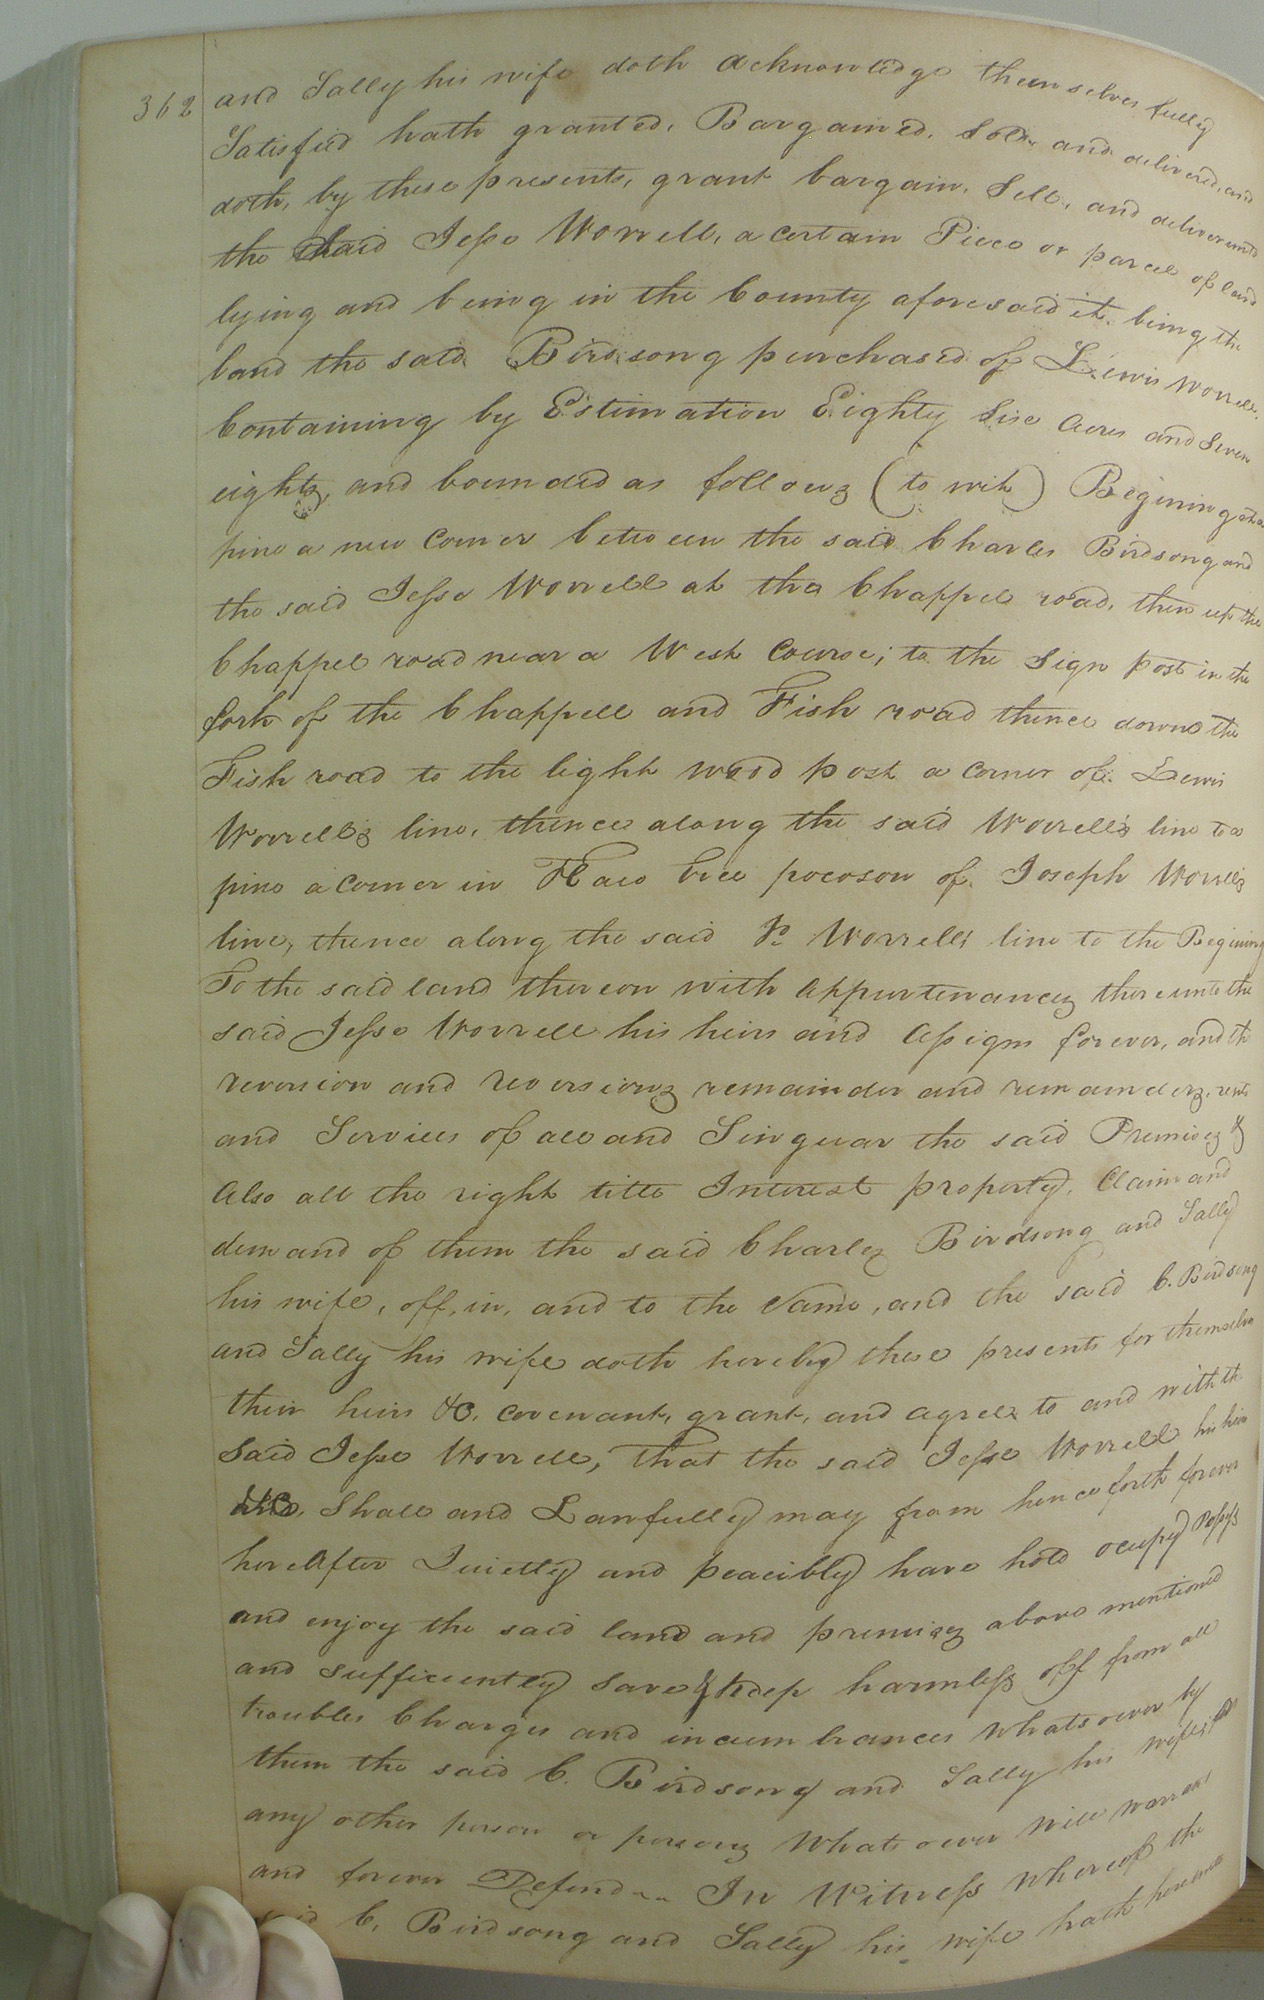 362
and Sally his wife doth acknowledge themselves fully
Satisfied hath granted, Bargained, Sold, and delivered, and
doth, by these presents, grant bargain, Sell, and deliver unto
the Said Jesse Worrell, a certain Piece or parcel of land
lying and being in the County aforesaid it being the
land the said Birdsong purchased of Lewis Worrell.
Containing by Estimation Eighty Six Acres and Seven
eights, and bounded as followes (to wit) Begining at a
pine a new Corner between the said Charles Birdsong and
the said Jesse Worrell at the Chappel road, then up the
Chappel road near a West Course; to the Sign post in the
fork of the Chappell and Fish road thence down the
Fish road to the light wood post a corner of Lewis
Worrell's line, thence along the said Worrell's line to a
pine a corner in Haw tree pocoson of Joseph Worrell's
line, thence along the said Worrell's line to the Begining
To the said land thereon with Appurtenances thereunto the
said Jesse Worrell his heirs and Assigns forever, and th
reversion and reversions remainder and remainders, rents
and Services of all and Singuar the said Premises &
Also all the right title Interest property, Claim and
demand of them the said Charles Birdsong and Sally
his wife, off, in, and to the Same, and the said C. Birdsong
and Sally his wife doth hereby these presents for themselves
their heirs &C, covenant, grant, and agree to and with th
Said Jesse Worrell, That the said Jesse Worrell his heirs
&C, Shall and Lawfully may from henceforth forever
hereAfter Quietly and peacibly have hold ocupy Possess
and enjoy the said land and premises above mentioned
and sufficiently save & keep harmless off from all
troubles Charges and incumbrances whatsoever by
them the said C. Birdsong and Sally his wife,
any other person or persons whatsoever will warrant
and forever Defend In Witness whereof the
said C. Birdsong and Sally his wife hath hereunto